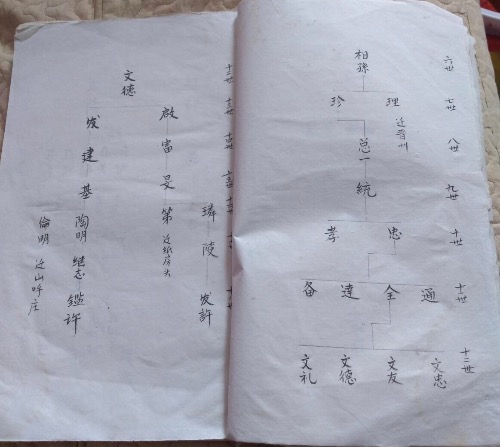 六世
相孫
七世
理 迁晋州
珍
八世
总一
九世
統
十世
忠
孝
十一世
通
全
達
备
十二世
文忠
文友
文德
文礼
十二世
十三世
十四世
文德
璘
陵
发許
啟
富
旻
第 迁紙房头
发
建
基
陶明
继志
鑑许
倫明 迁山呼庄